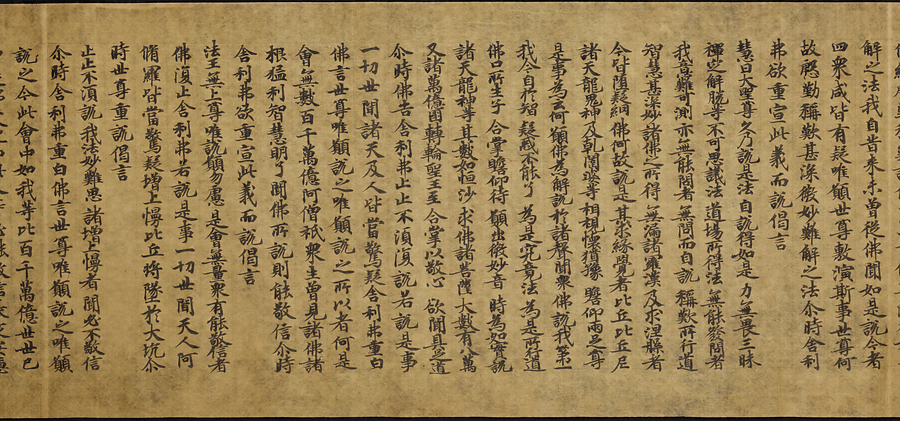 解之法我自昔來未曾從佛聞如是說今者
四衆咸皆有疑唯願世尊敷演斯事世尊何
故慇勤稱歎甚深微妙難解之法尒時舍利
弗欲重宣此義而說偈言
慧日大聖尊 久乃說是法 自說得如是 力無畏三昧
禪定解脫等 不可思議法 道場所得法 無能發問者
我意難可測 亦無能問者 無問而自說 稱歎所行道
智慧甚深妙 諸佛之所得 無漏諸羅漢 及求涅槃者
今皆墮疑網 佛何故說是 其求緣覺者 比丘比丘尼
諸天龍鬼神 及乾闥婆等 相視懷猶豫 瞻仰兩足尊
是事為云何 願佛為解說 於諸聲聞衆 佛說我第一
我今自於智 疑惑不能了 為是究竟法 為是所行道
佛口所生子 合掌瞻仰待 願出微妙音 時為如實說
諸天龍神等 其數如恒沙 求佛諸菩薩 大數有八萬
又諸萬億國 轉輪聖王至 合掌以敬心 欲聞具足道
尒時佛告舍利弗止止不須說若說是事
一切世間諸天及人皆當驚疑舍利弗重白
佛言世尊唯願說之唯願說之所以者何是
會無數百千萬億阿僧祇衆生曾見諸佛諸
根猛利智慧明了聞佛所說則能敬信尒時
舍利弗欲重宣此義而說偈言
法王無上尊 唯說願勿慮 是會無量衆 有能敬信者
佛須止舍利弗若說是事一切世間天人阿
脩羅皆當驚疑增上慢比丘將墜於大坑尒
時世尊重說偈言
止止不須說 我法妙難思 諸增上慢者 聞必不敬信
尒時舍利弗重白佛言世尊唯願說之唯願
說之今此會中如我等比百千萬億世世已